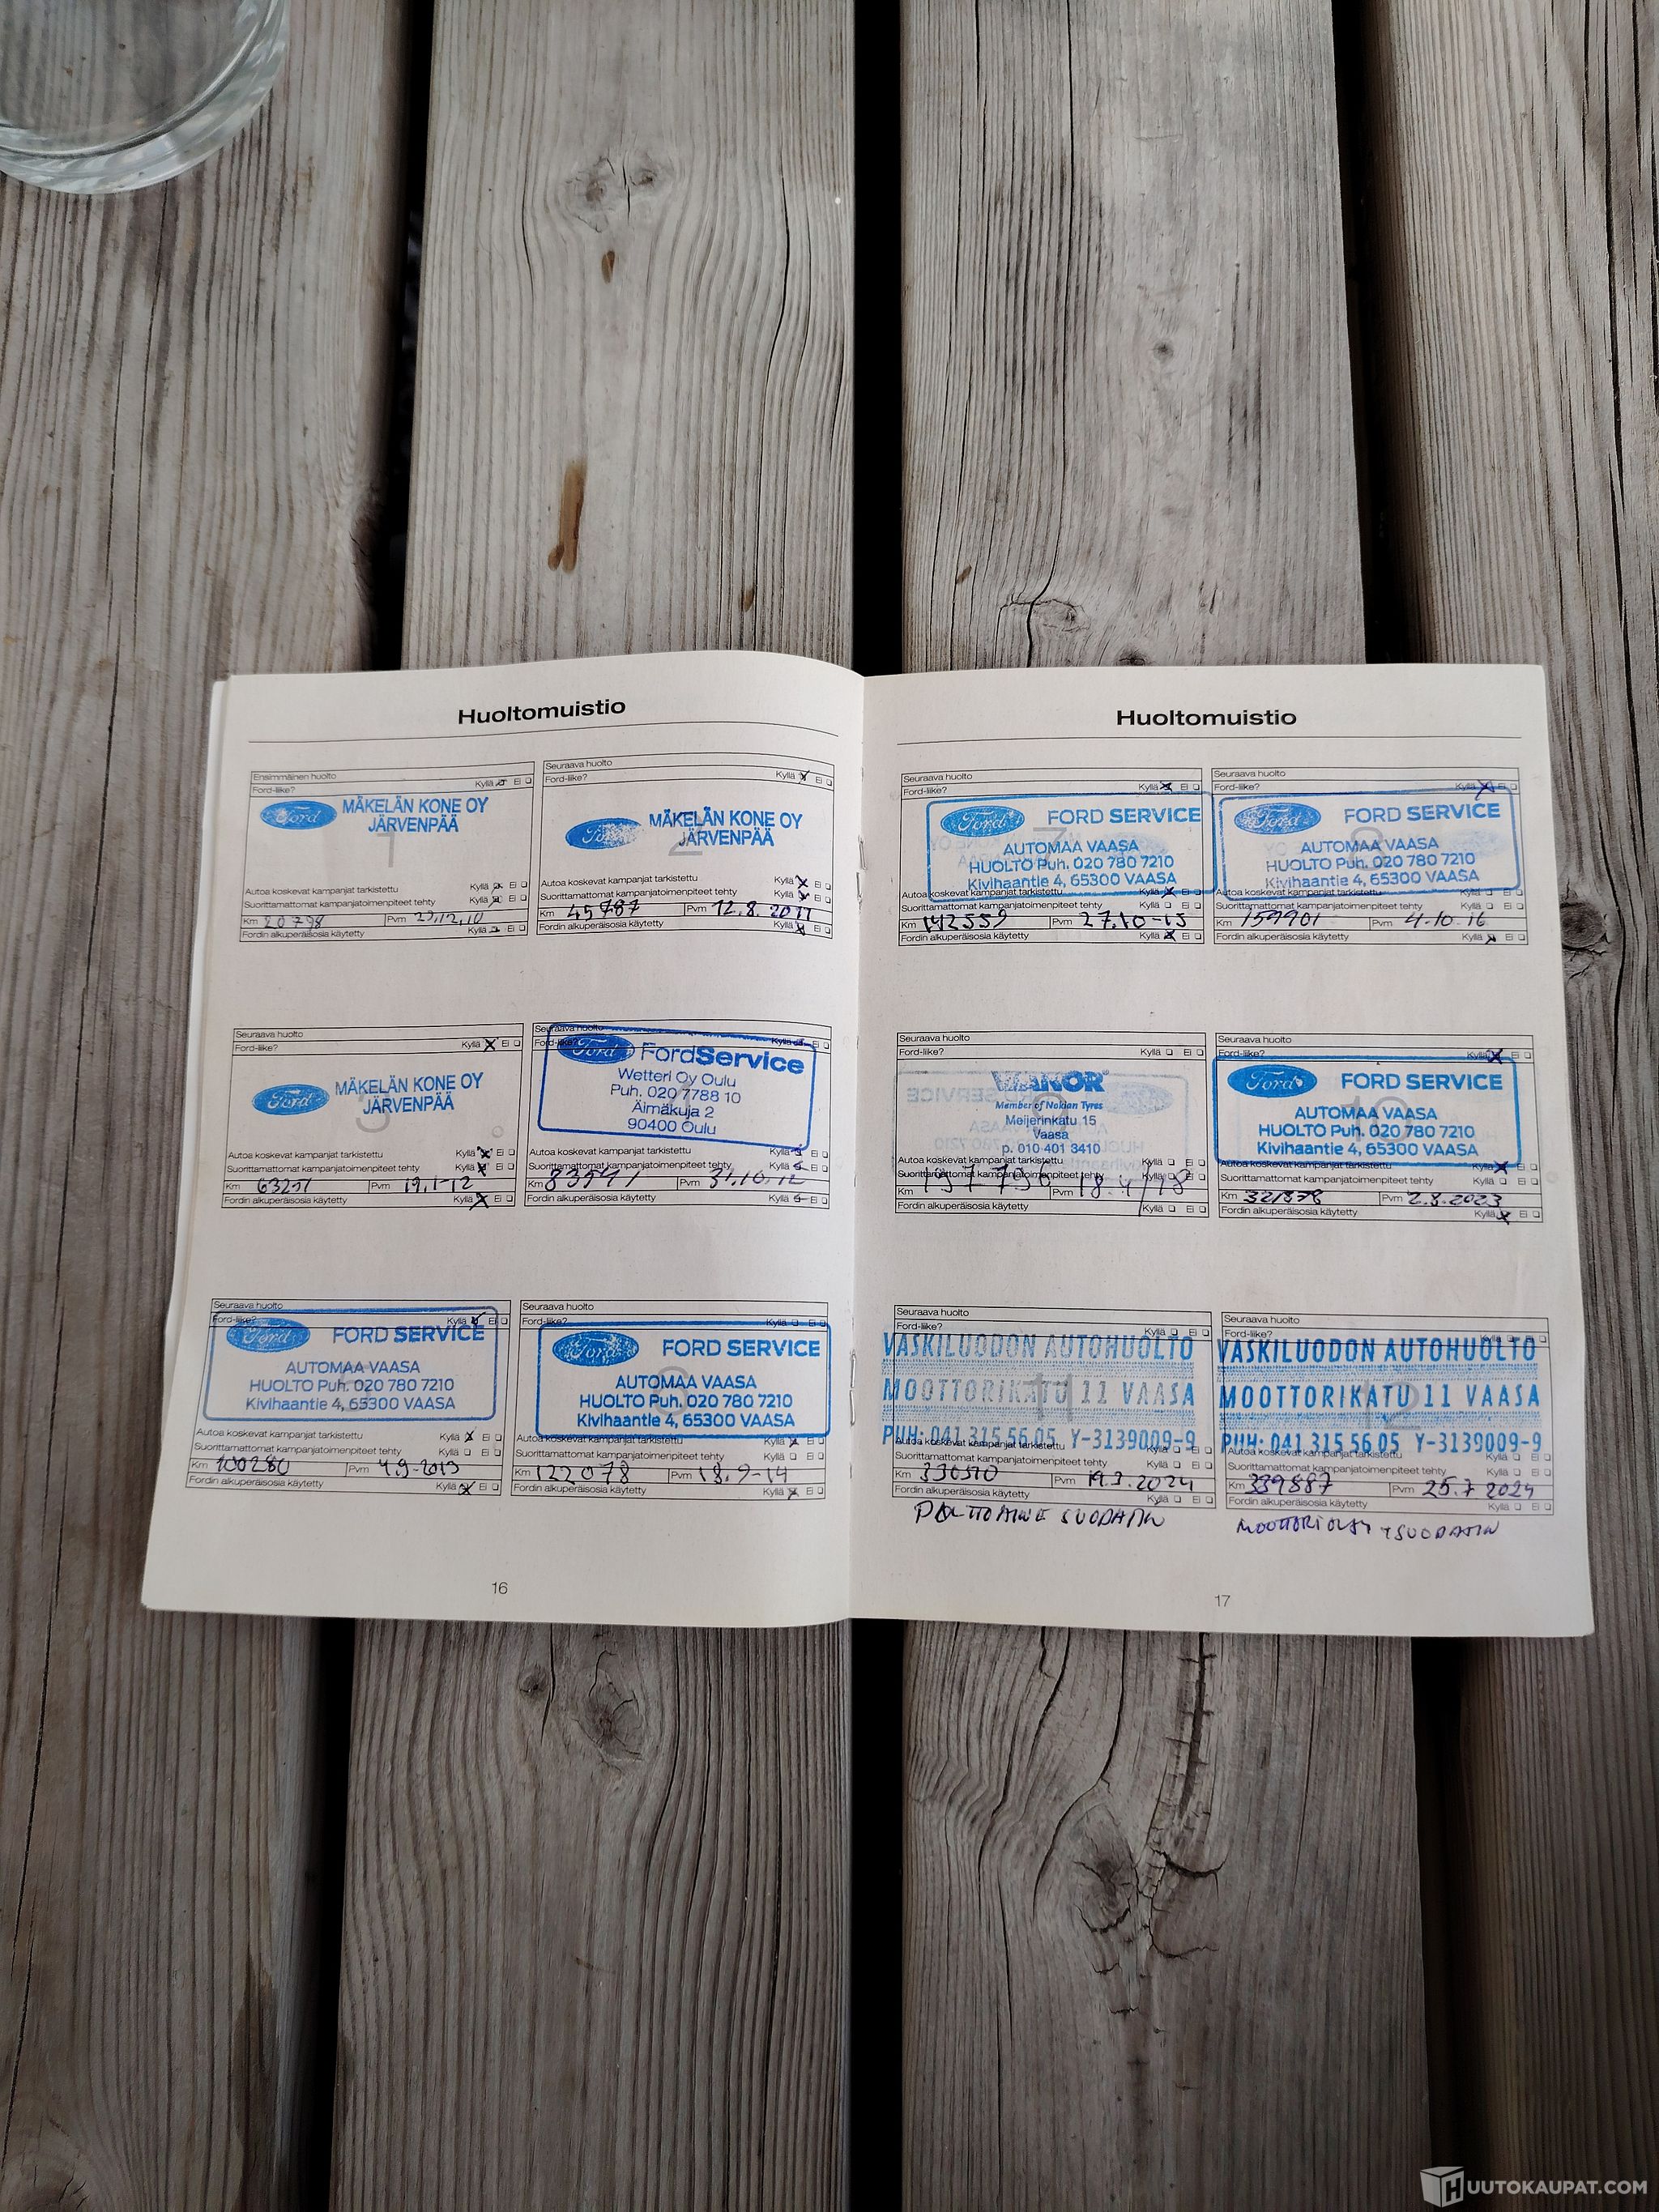 Huoltomuistio
Ensimmäinen huolto
Ford-liike? Kyllä Ei
Ford MÄKELÄN KONE OY
JÄRVENPÄÄ
1
Autoa koskevat kampanjat tarkistettu Kyllä Ei
Suorittamattomat kampanjatoimenpiteet tehty Kyllä Ei
Km 20798 Pvm 29.12.10
Fordin alkuperäisosia käytetty Kyllä Ei
Seuraava huolto
Ford-liike? Kyllä Ei
Ford MÄKELÄN KONE OY
JÄRVENPÄÄ
2
Autoa koskevat kampanjat tarkistettu Kyllä Ei
Suorittamattomat kampanjatoimenpiteet tehty Kyllä Ei
Km 45787 Pvm 12.8.2011
Fordin alkuperäisosia käytetty Kyllä Ei
Seuraava huolto
Ford-liike? Kyllä Ei
Ford MÄKELÄN KONE OY
JÄRVENPÄÄ
3
Autoa koskevat kampanjat tarkistettu Kyllä Ei
Suorittamattomat kampanjatoimenpiteet tehty Kyllä Ei
Km Pvm 19.1-12
Fordin alkuperäisosia käytetty Kyllä Ei
Seuraava huolto
Ford-liike? Kyllä Ei
Ford FordService
Wetteri Oy Oulu
Puh. 020 7788 10
Äimäkuja 2
90400 Oulu
Autoa koskevat kampanjat tarkistettu Kyllä Ei
Suorittamattomat kampanjatoimenpiteet tehty Kyllä Ei
Km Pvm 31.10.12
Fordin alkuperäisosia käytetty Kyllä Ei
Seuraava huolto
Ford-liike? Kyllä Ei
Ford FORD SERVICE
AUTOMAA VAASA
HUOLTO Puh. 020 780 7210
Kivihaantie 4, 65300 VAASA
Autoa koskevat kampanjat tarkistettu Kyllä Ei
Suorittamattomat kampanjatoimenpiteet tehty Kyllä Ei
Km 100280 Pvm 4.9-2013
Fordin alkuperäisosia käytetty Kyllä Ei
Seuraava huolto
Ford-liike? Kyllä Ei
Ford FORD SERVICE
AUTOMAA VAASA
HUOLTO Puh. 020 780 7210
Kivihaantie 4, 65300 VAASA
Autoa koskevat kampanjat tarkistettu Kyllä Ei
Suorittamattomat kampanjatoimenpiteet tehty Kyllä Ei
Km 122078 Pvm 18.9-14
Fordin alkuperäisosia käytetty Kyllä Ei
16
Huoltomuistio
Seuraava huolto
Ford-liike? Kyllä Ei
Ford FORD SERVICE
AUTOMAA VAASA
HUOLTO Puh. 020 780 7210
Kivihaantie 4, 65300 VAASA
Autoa koskevat kampanjat tarkistettu Kyllä Ei
Suorittamattomat kampanjatoimenpiteet tehty Kyllä Ei
Km 142559 Pvm 27.10-15
Fordin alkuperäisosia käytetty Kyllä Ei
Seuraava huolto
Ford-liike? Kyllä Ei
Ford FORD SERVICE
AUTOMAA VAASA
HUOLTO Puh. 020 780 7210
Kivihaantie 4, 65300 VAASA
Autoa koskevat kampanjat tarkistettu Kyllä Ei
Suorittamattomat kampanjatoimenpiteet tehty Kyllä Ei
Km 159901 Pvm 4.10.16
Fordin alkuperäisosia käytetty Kyllä Ei
Seuraava huolto
Ford-liike? Kyllä Ei
VIANOR
Member of Nokian Tyres
Meijerinkatu 15
Vaasa
p. 010 401 3410
Autoa koskevat kampanjat tarkistettu Kyllä Ei
Suorittamattomat kampanjatoimenpiteet tehty Kyllä Ei
Km 197736 Pvm 18.4/18
Fordin alkuperäisosia käytetty Kyllä Ei
Seuraava huolto
Ford-liike? Kyllä Ei
Ford FORD SERVICE
AUTOMAA VAASA
HUOLTO Puh. 020 780 7210
Kivihaantie 4, 65300 VAASA
Autoa koskevat kampanjat tarkistettu Kyllä Ei
Suorittamattomat kampanjatoimenpiteet tehty Kyllä Ei
Km 321878 Pvm 2.8.2023
Fordin alkuperäisosia käytetty Kyllä Ei
Seuraava huolto
Ford-liike? Kyllä Ei
VASKILUODON AUTOHUOLTO
MOOTTORIKATU 11 VAASA
11
PUH: 041 315 56 05 Y-3139009-9
Autoa koskevat kampanjat tarkistettu Kyllä Ei
Suorittamattomat kampanjatoimenpiteet tehty Kyllä Ei
Km Pvm 19.3.2024
Fordin alkuperäisosia käytetty Kyllä Ei
POLTTOAINE SUODATIN
Seuraava huolto
Ford-liike? Kyllä Ei
VASKILUODON AUTOHUOLTO
MOOTTORIKATU 11 VAASA
12
PUH: 041 315 56 05 Y-3139009-9
Autoa koskevat kampanjat tarkistettu Kyllä Ei
Suorittamattomat kampanjatoimenpiteet tehty Kyllä Ei
Km 339887 Pvm 25.7.2024
Fordin alkuperäisosia käytetty Kyllä Ei
MOOTTORIÖLJY + SUODATIN
17
HUUTOKAUPAT.COM